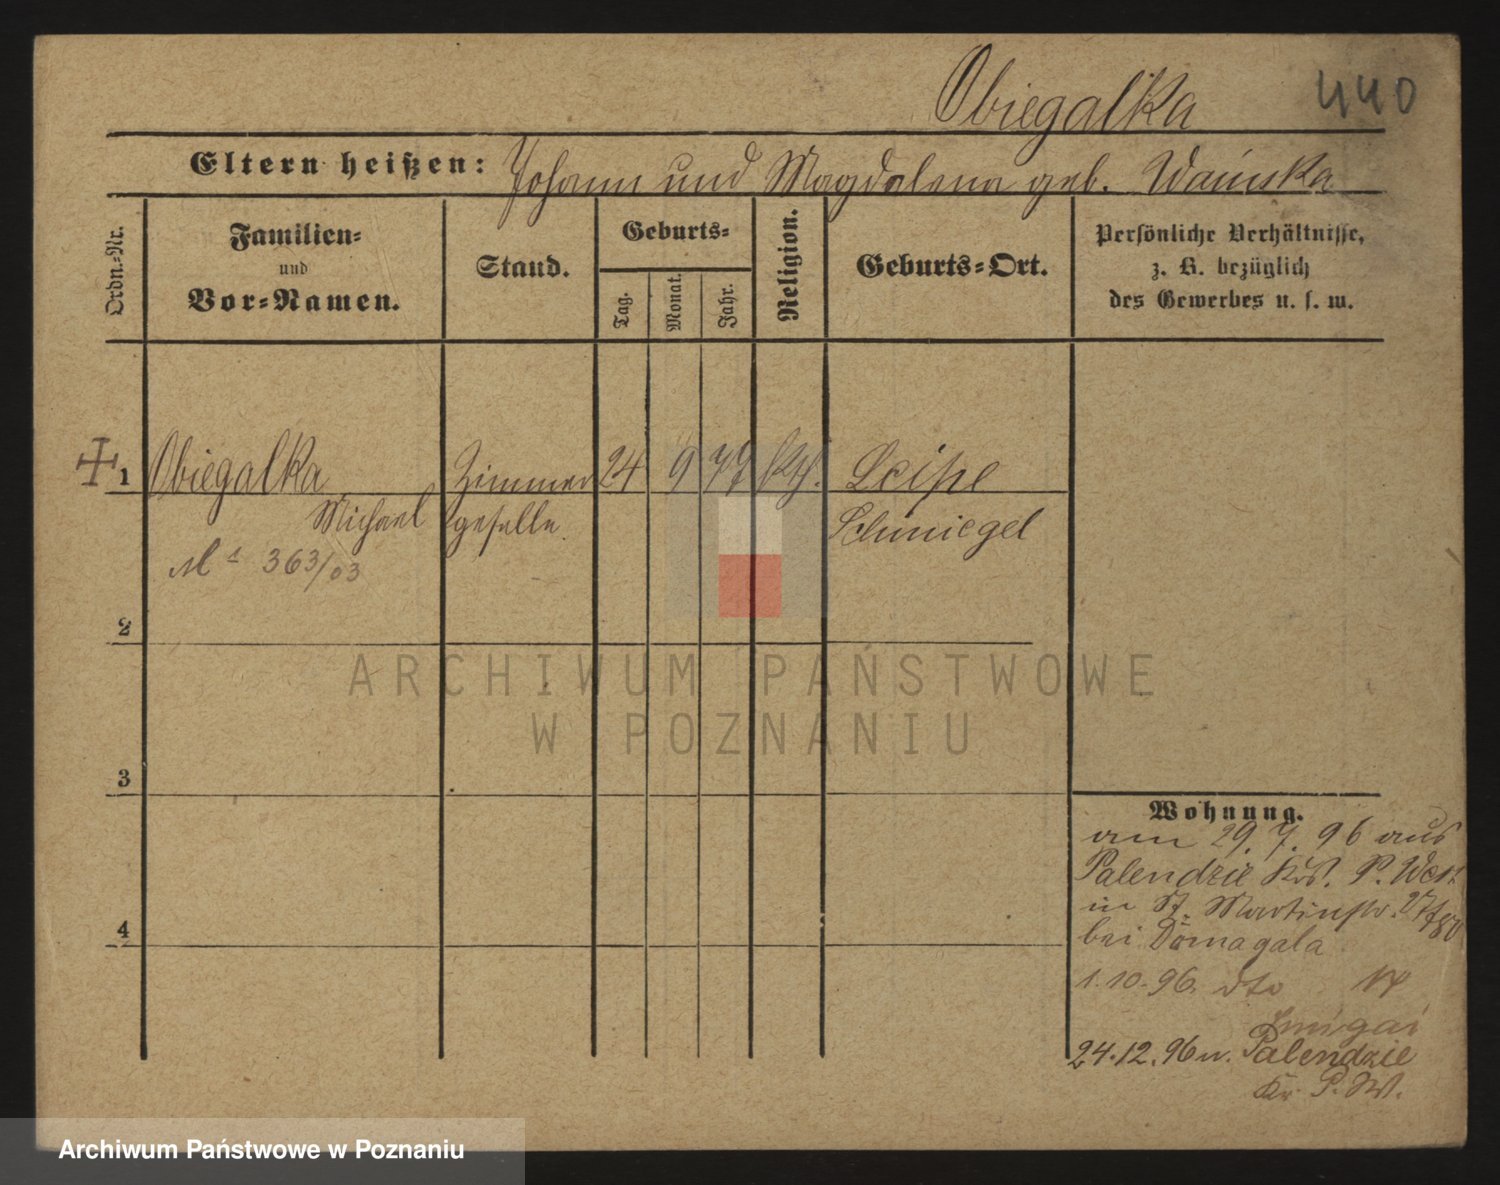 Obiegalka 440
Eltern heißen: Johann und Magdalena geb.
Ordn.-Nr.
Familien-
und
Vor-Namen.
Stand.
Geburts-
Tag.
Monat.
Jahr.
Religion.
Geburts-Ort.
Persönliche Verhältnisse,
z. B. bezüglich
des Gewerbes u. s. w.
1 Obiegalka Zimmer 24 9 77 kth. Leipe
Michael geselle Schmiegel
363/03
2
3
4
Wohnung.
am 29. 7. 96 aus
Palendzie Krs. P. West
in St. Martinstr.
bei Domagala
1. 10. 96. dto
24.12.96 n. Palendzie
Kr. P. W.
ARCHIWUM PAŃSTWOWE
W POZNANIU
Archiwum Państwowe w Poznaniu